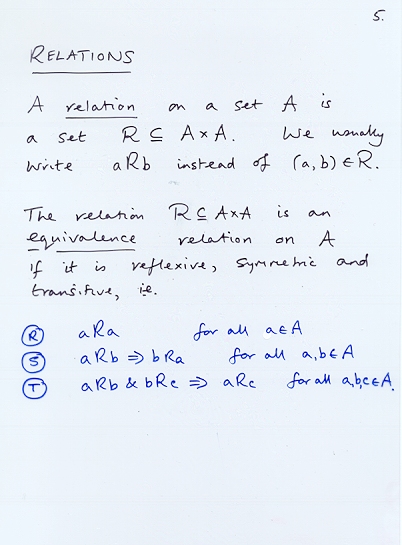 5.
RELATIONS
A relation on a set A is
a set R ⊆ A×A. We usually
write aRb instead of (a, b) ∈ R.
The relation R ⊆ A×A is an
equivalence relation on A
if it is reflexive, symmetric and
transitive, ie.
Ⓡ aRa for all a∈A
Ⓢ aRb ⇒ bRa for all a,b∈A
Ⓣ aRb & bRc ⇒ aRc for all a,b,c∈A.